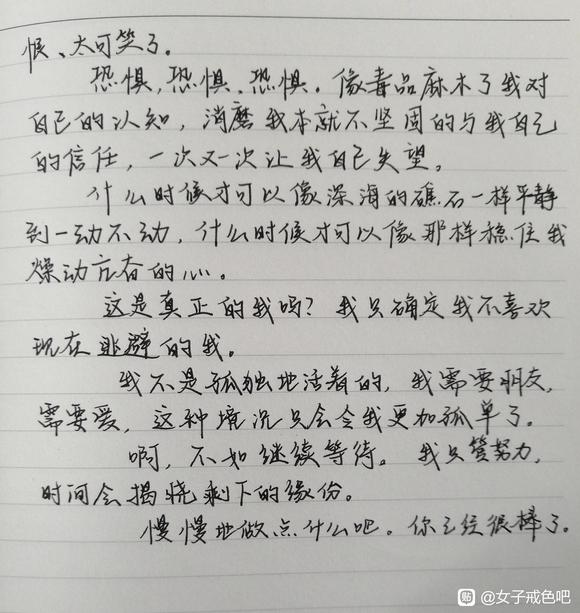 恨、太可笑了。
恐惧,恐惧、恐惧。像毒品麻木了我对
自己的认知,消磨我本就不坚固的与我自己
的信任,一次又一次让我自己失望。
什么时候才可以像深海的礁石一样平静
到一动不动,什么时候才可以像那样稳住我
燥动亢奋的心。
这是真正的我吗?我只确定我不喜欢
现在逃避的我。
我不是孤独地活着的,我需要朋友,
需要爱,这种境况只会令我更加孤单了。
啊,不如继续等待。我只管努力,
时间会揭晓剩下的缘份。
慢慢地做点什么吧。你已经很棒了。
贴 @女子戒色吧